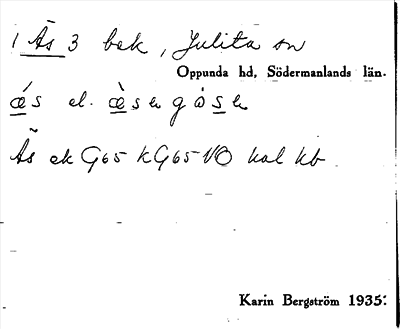 1 Äs 3 bek, Julita sn
Oppunda hd, Södermanlands län.
ǽs el. 
Äs ek G65 KG65 VO kal kb
Karin Bergström 1935.